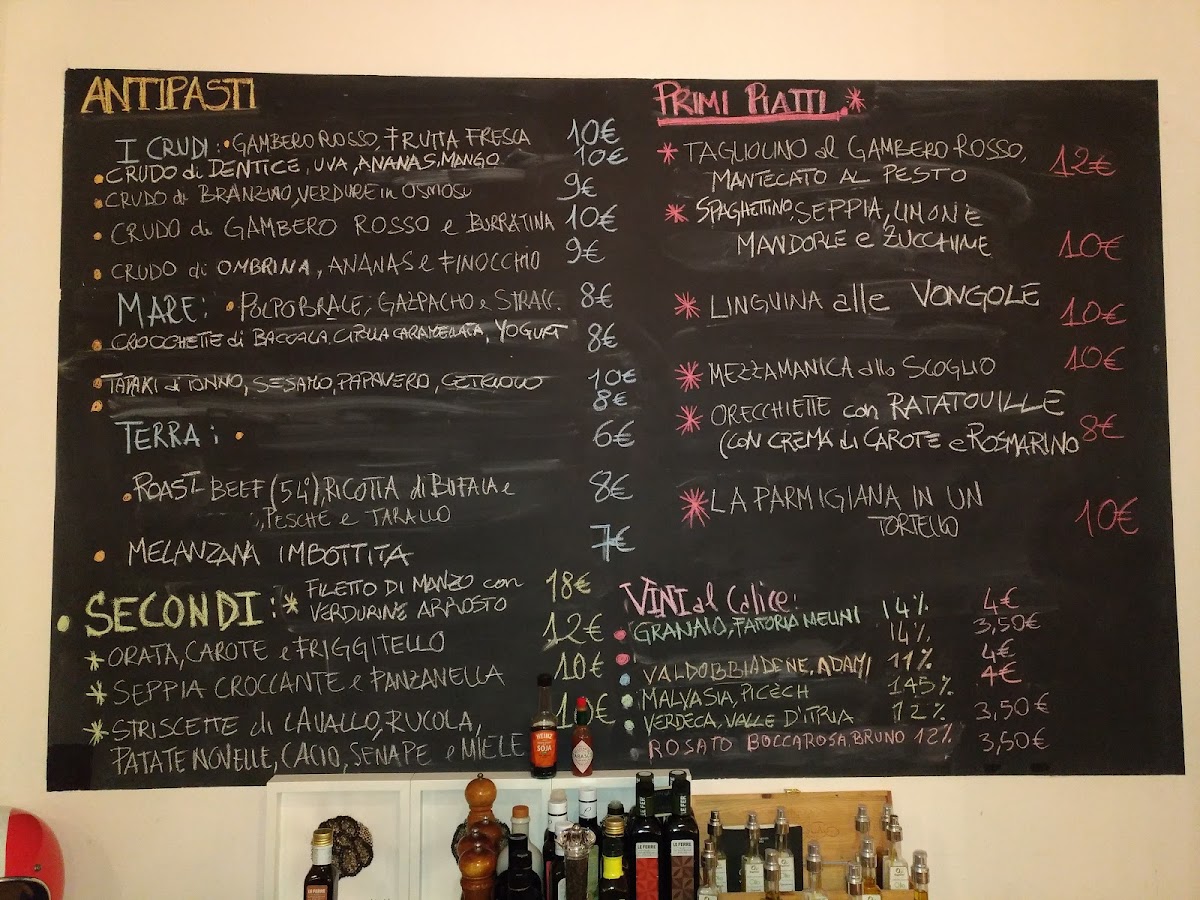 ANTIPASTI
I CRUDI: • GAMBERO ROSSO, FRUTTA FRESCA 10€
• CRUDO di DENTICE, UVA, ANANAS, MANGO 10€
• CRUDO di BRANZINO, VERDURE in OSMOSI 9€
• CRUDO di GAMBERO ROSSO e BURRATINA 10€
• CRUDO di OMBRINA, ANANAS e FINOCCHIO 9€
MARE: • POLPO BRACE, GAZPACHO e STRACC. 8€
• CROCCHETTE di BACCALA, CIPOLLA CARAMELLATA, YOGURT 8€
• TATAKI di TONNO, SESAMO, PAPAVERO, CETRIOLO 10€
• 8€
TERRA: • 6€
• ROAST-BEEF (54°), RICOTTA di BUFALA e 8€
, PESCHE e TARALLO
• MELANZANA IMBOTTITA 7€
• SECONDI: * FILETTO DI MANZO con 18€
VERDURINE ARROSTO
* ORATA, CAROTE e FRIGGITELLO 12€
* SEPPIA CROCCANTE e PANZANELLA 10€
* STRISCETTE di CAVALLO, RUCOLA, 10€
PATATE NOVELLE, CACIO, SENAPE e MIELE
PRIMI PIATTI *
* TAGLIOLINO al GAMBERO ROSSO, 12€
MANTECATO AL PESTO
* SPAGHETTINO, SEPPIA, LIMONE
MANDORLE e ZUCCHINE 10€
* LINGUINA alle VONGOLE 10€
* MEZZAMANICA allo SCOGLIO 10€
* ORECCHIETTE con RATATOUILLE
(CON CREMA di CAROTE e ROSMARINO 8€
* LA PARMIGIANA IN UN
TORTELLO 10€
VINI al Calice: 14% 4€
• GRANAIO, FATTORIA MELINI 14% 3,50€
• VALDOBBIADENE, ADAMI 11% 4€
• MALVASIA, PICÈCH 145% 4€
• VERDECA, VALLE D'ITRIA 12% 3,50€
ROSATO BOCCAROSA, BRUNO 12% 3,50€
HEINZ
SOJA
LE FERRE
LE FERRE
LE FERRE